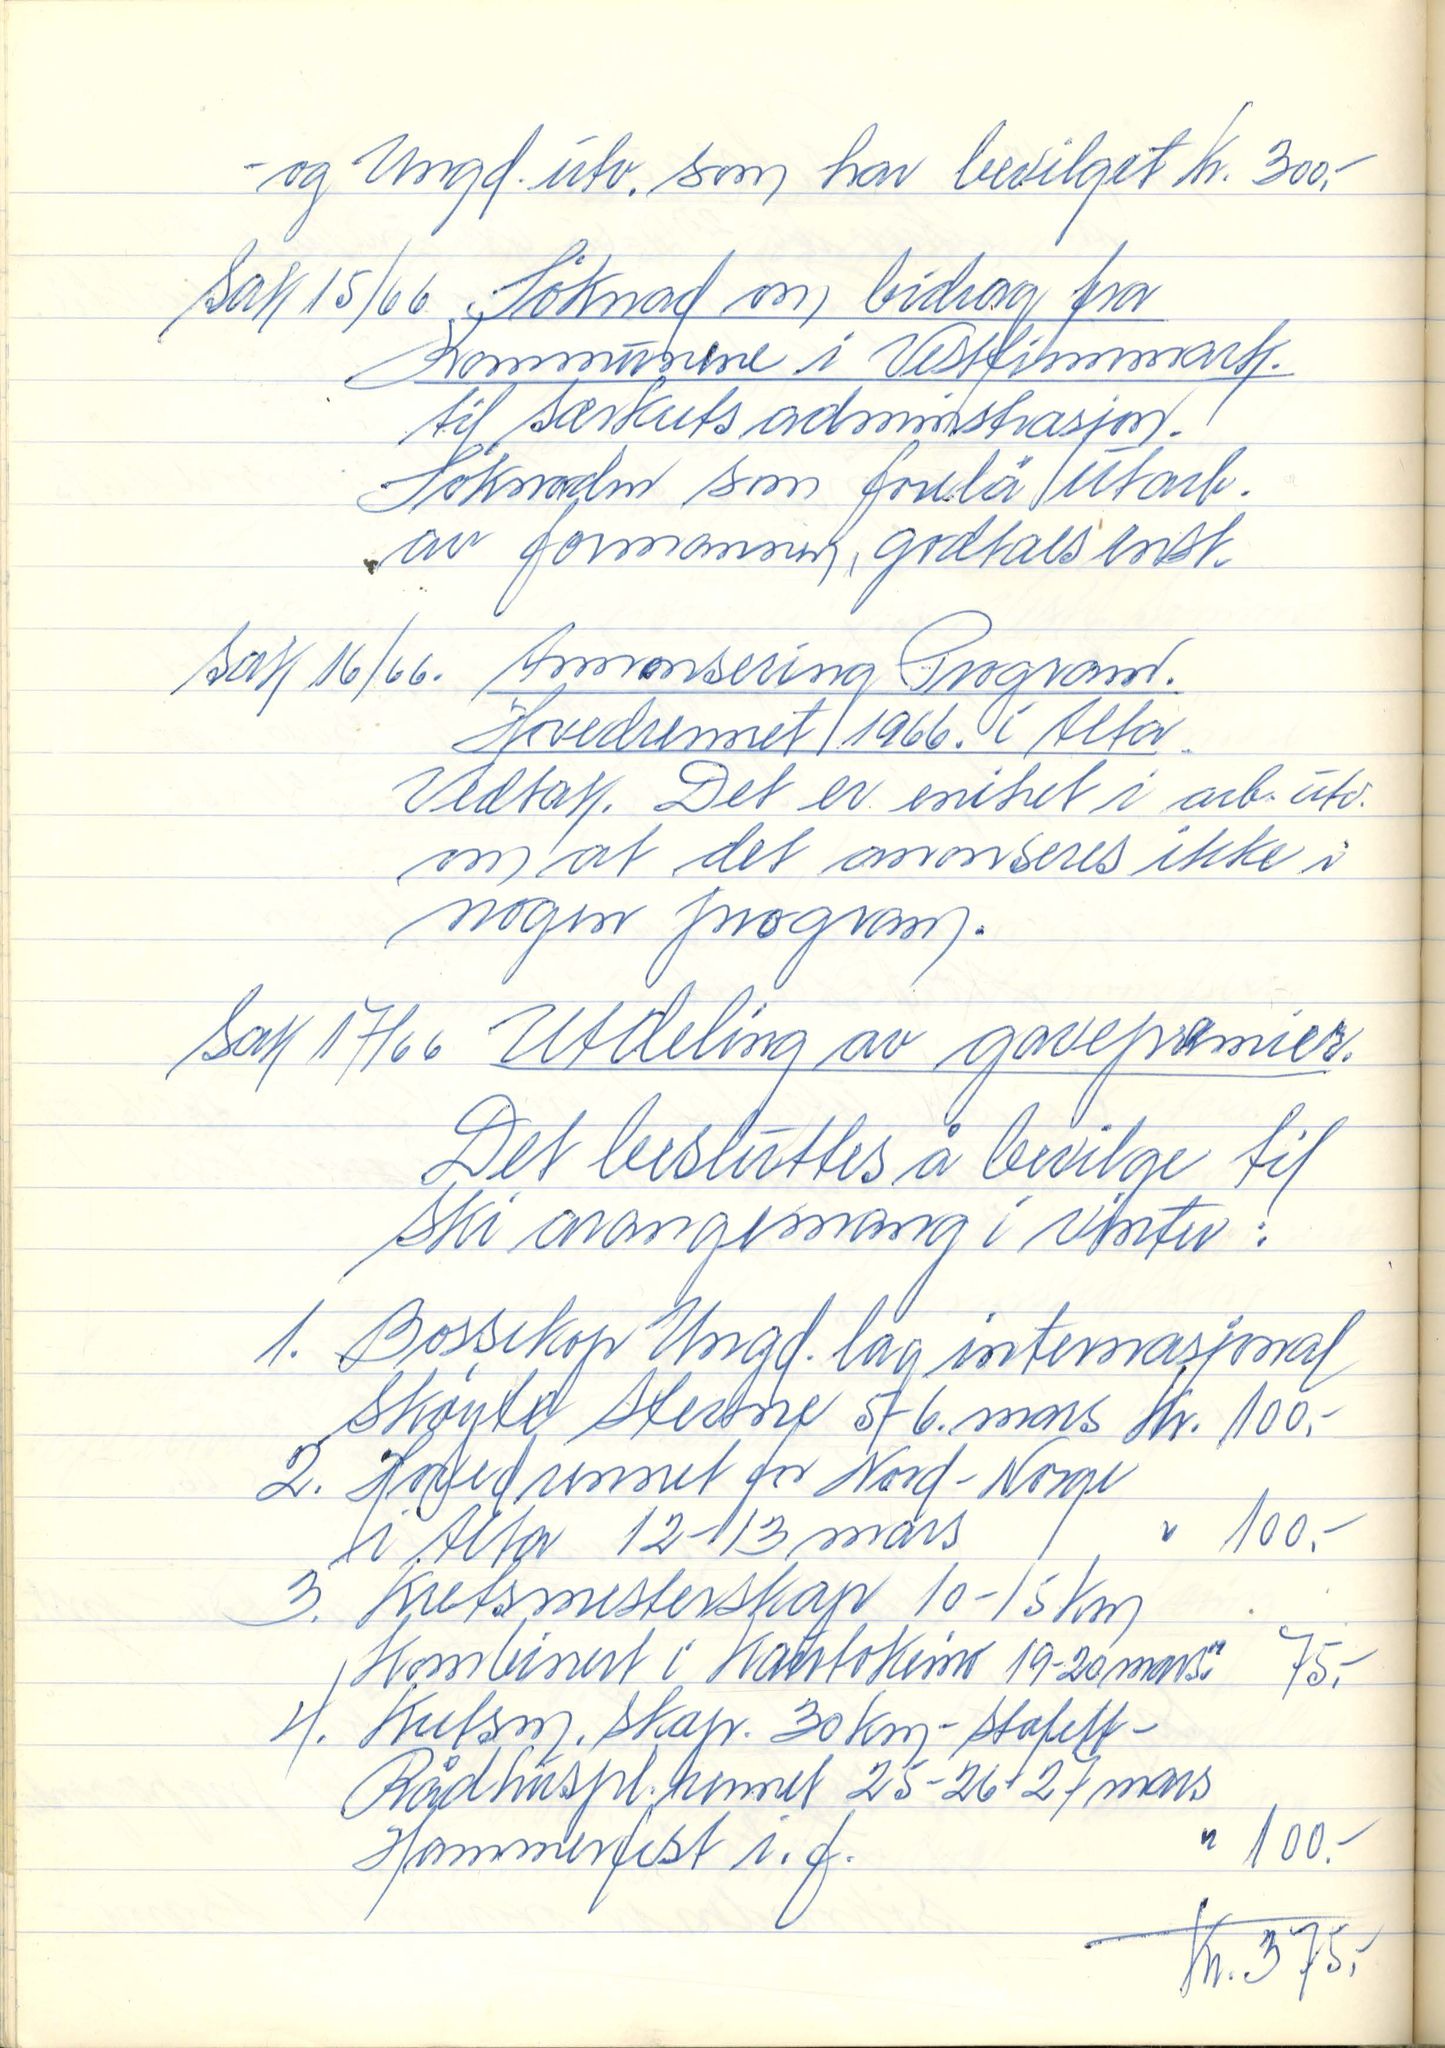 - og Ungd. utv. som har bevilget kr. 300,-
Sak 15/66. Söknad om bidrag fra
Kommunene i Vestfinnmark.
til særkrets administrasjon.
Söknaden som forelå utarb.
av formannen, godtaes enst.
Sak 16/66. Annonsering Program.
Hovedrennet 1966. i Alta.
Vedtak. Det er enihet i arb. utv.
om at det anonseres ikke i
nogen program.
Sak 17/66 Utdeling av gavepremier.
Det besluttes å bevilge til
ski arangemang i vinter:
1. Bossekop Ungd. lag internasjonal
Skøyte stevne 5-6. mars Kr. 100,-
2. Hovedrennet for Nord-Norge
i Alta 12-13 mars " 100.-
3. Kretsmesterskap 10-15 km
Kombinert i Kautokeino 19-20 mars " 75,-
4. Kretsm. skap. 30 km - stafett -
Rådhuspl. rennet 25-26-27 mars
Hammerfest i.f. " 100.-
Kr. 375,-